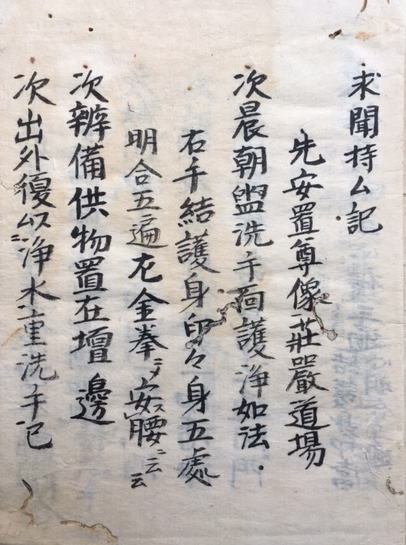 求聞持ム記
先安置尊像莊嚴道場
次晨朝盥洗手面護浄如法
右手結護身印々身五處
明合五遍左金拳ニメ安腰ニ云云
次辨備供物置在壇邊
次出外復以浄水重洗手已